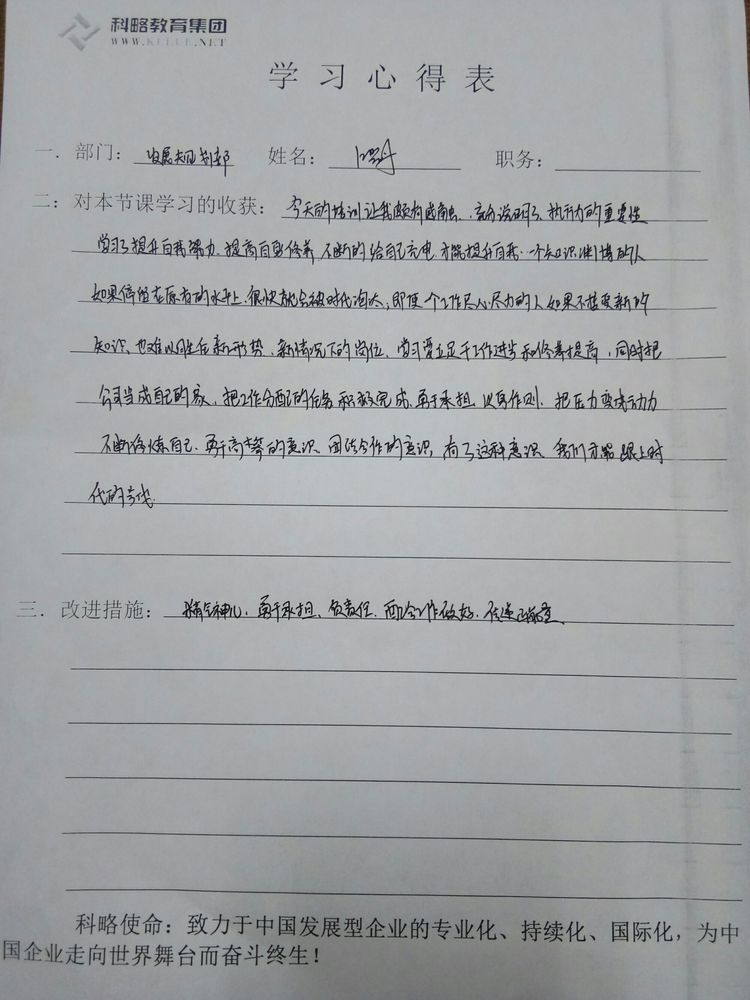 科略教育集团
WWW.KELUE.NET
学习心得表
一．部门：发展规划部 姓名： 职务：
二：对本节课学习的收获：今天的培训让我颇有感触，充分说明了执行力的重要性
学习了提升自我努力，提高自身修养，不断的给自己充电，才能提升自我．一个知识渊博的人
如果停留在原有的水平上，很快就会被时代淘汰，即使一个工作尽心尽力的人如果不接受新的
知识，也难以胜任新形势、新情况下的岗位，学习要立足于工作进步和修养提高，同时把
公司当成自己的家，把工作分配的任务积极完成，勇于承担，以身作则．把压力变成动力
不断修炼自己．勇于高攀的意识，团结合作的意识，有了这种意识，我们才能跟上时
代的步伐．
三．改进措施：精气神儿，勇于承担、负责任，配合工作做好，传递正能量
科略使命：致力于中国发展型企业的专业化、持续化、国际化，为中
国企业走向世界舞台而奋斗终生！